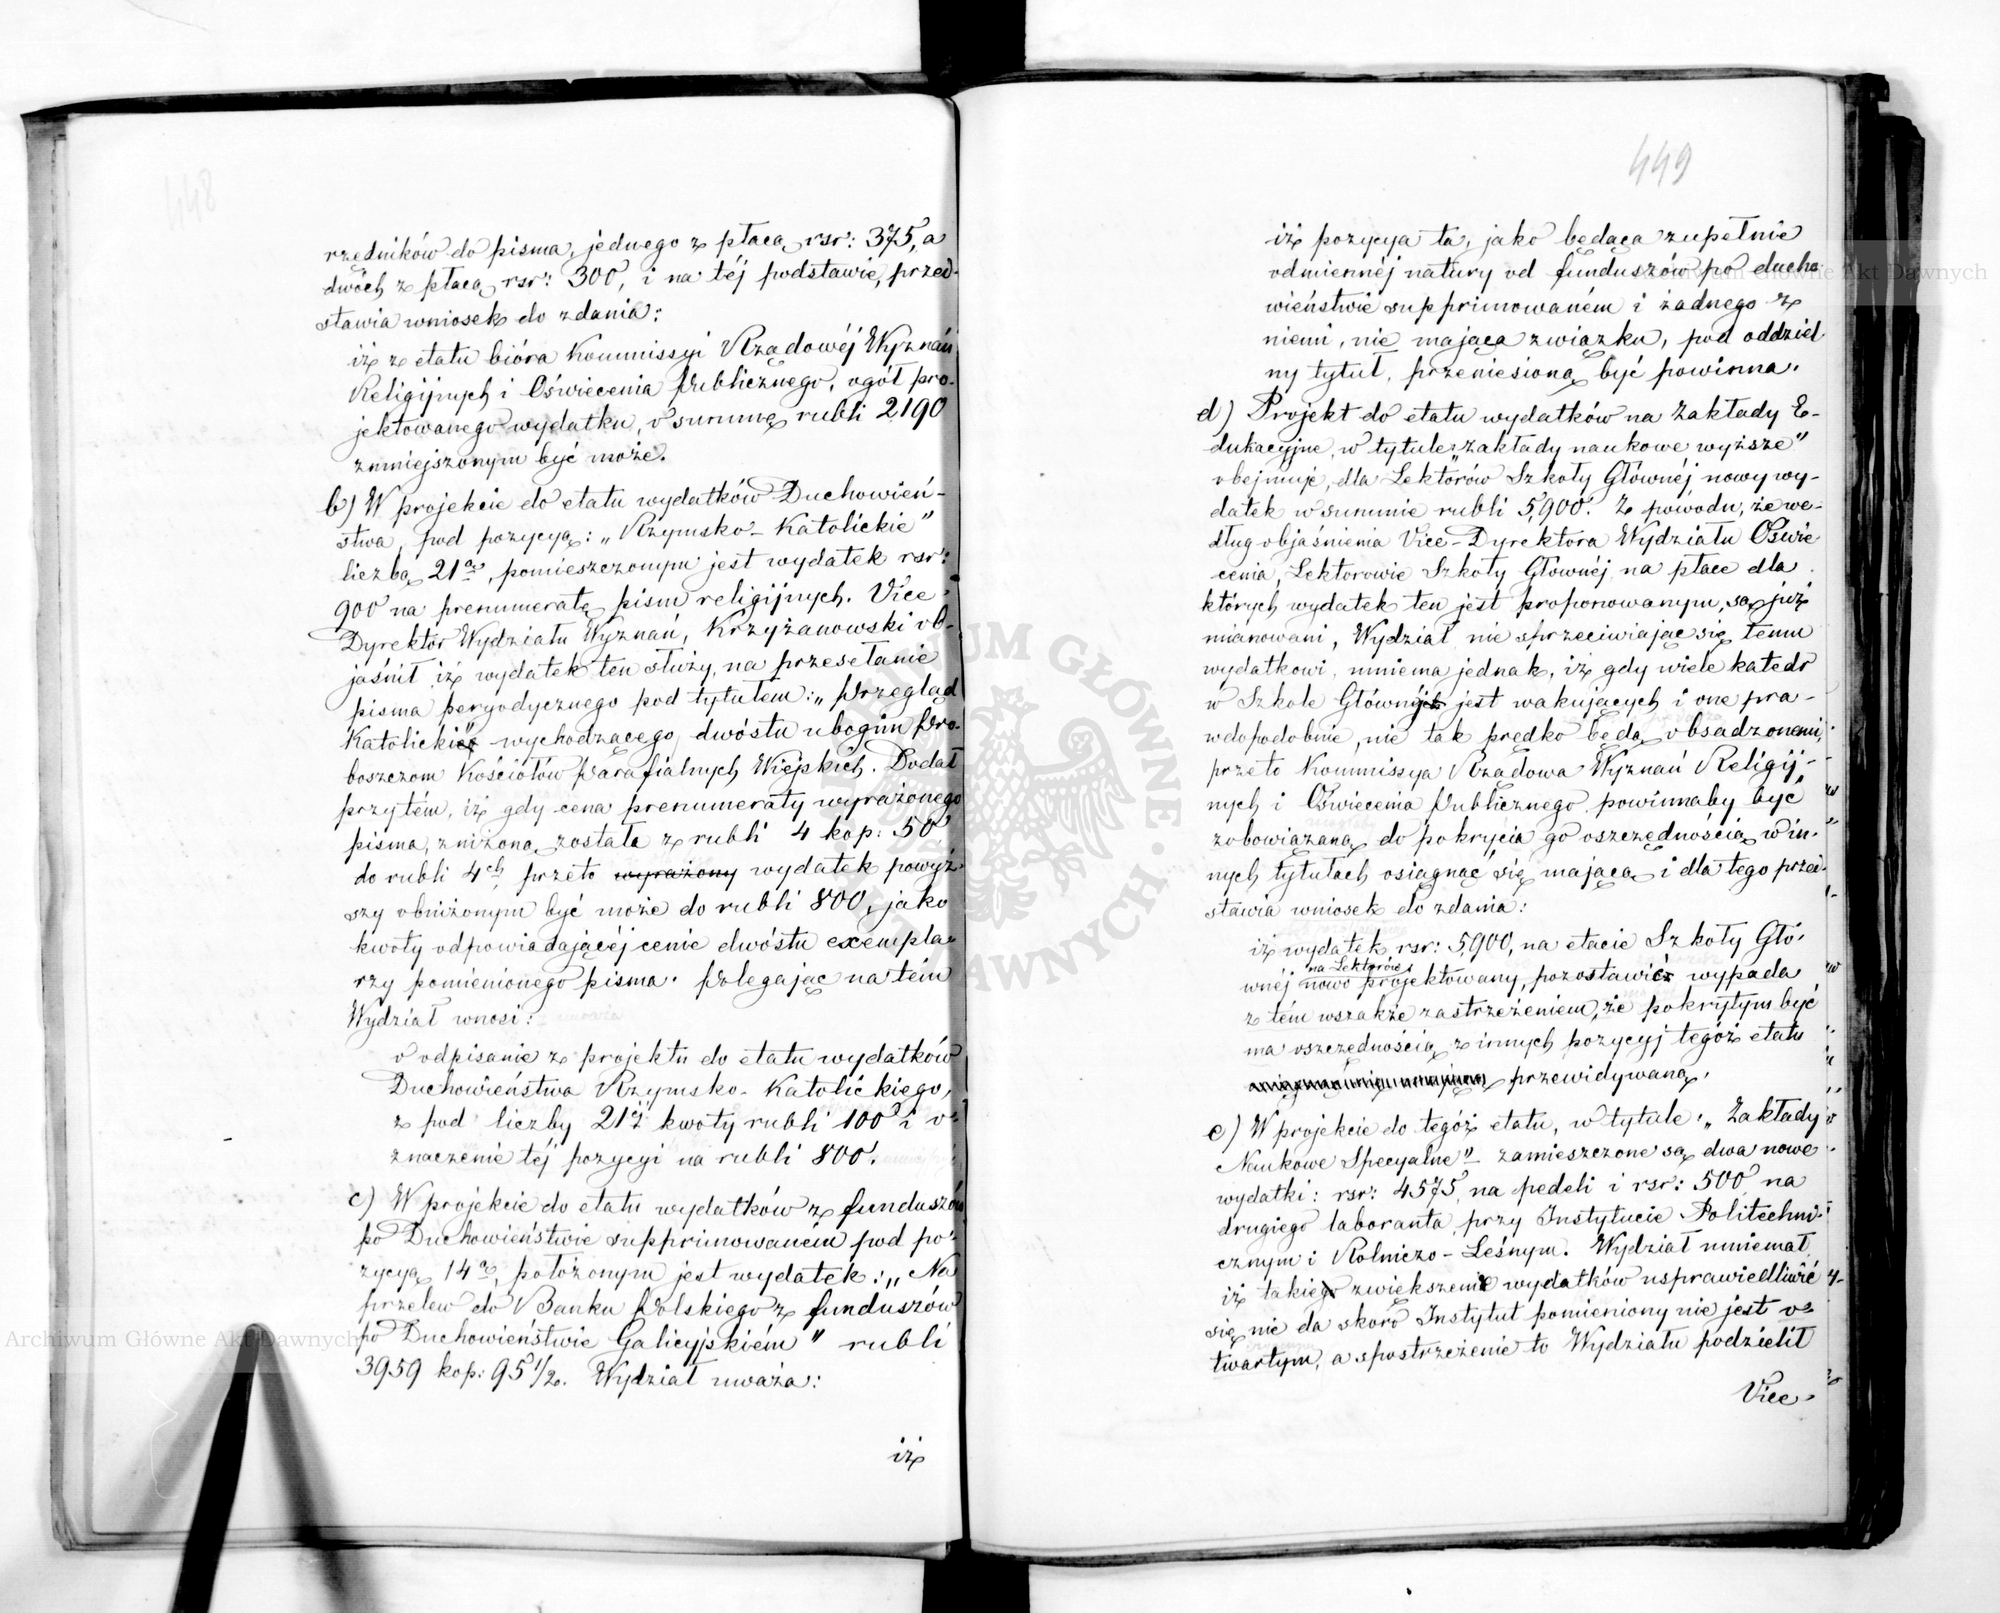 448
rzędników do pisma, jednego z płacą rsr: 375, a
dwóch z płacą rsr: 300, i na téj podstawie, przed-
stawia wniosek do zdania:
iż z etatu bióra Kommissyi Rządowéj Wyznań
Religijnych i Oświecenia Publicznego, ogół pro-
jektowanego wydatku, o summę rubli 2190
zmniejszonym być może.
b) W projekcie do etatu wydatków Duchowień-
stwa, pod pozycyą: „Rzymsko-Katolickie"
liczbą 21ą, pomieszczonym jest wydatek rsr:
900 na prenumeratę pism religijnych. Vice-
Dyrektor Wydziału Wyznań, Krzyżanowski ob-
jaśnił iż wydatek ten służy, na przesełanie
pisma peryodycznego pod tytułem: „Przegląd
Katolicki" wychodzącego, dwóstu ubogim Pro-
boszczom Kościołów Parafialnych Wiejskich. Dodał
przytém, iż gdy cena prenumeraty wyrażonego
pisma, zniżoną została z rubli 4 kop: 50
do rubli 4ch, przeto wyrażony wydatek powyż-
szy obniżonym być może do rubli 800, jako
kwoty odpowiadającéj cenie dwóstu exempla-
rzy pomienionego pisma. Polegając na tém
Wydział wnosi:
o odpisanie z projektu do etatu wydatków
Duchowieństwa Rzymsko-Katolickiego,
z pod liczby 21éj kwoty rubli 100 i o-
znaczenie téj pozycyi na rubli 800.
c) W projekcie do etatu wydatków z funduszów
po Duchowieństwie supprimowaném pod po-
zycyą 14ą, położonym jest wydatek: „Na
przelew do Banku Polskiego z funduszów
po Duchowieństwie Galicyjskiém" rubli
3959 kop: 95 1/2. Wydział uważa:
iż
449
iż pozycya ta, jako będąca zupełnie
odmiennéj natury od funduszów po ducho
wieństwie supprimowaném i żadnego z
niemi, nie mająca związku, pod oddziel
ny tytuł, przeniesioną być powinna.
d) Projekt do etatu wydatków na Zakłady E-
dukacyjne, w tytule: „zakłady naukowe wyższe"
obejmuje, dla Lektorów Szkoły Głównéj nowy wy-
datek w summie rubli 5,900. Z powodu, że we-
dług objaśnienia Vice-Dyrektora Wydziału Oświe
cenia, Lektorowie Szkoły Głównéj na płace dla
których wydatek ten jest proponowanym, są już
mianowani, Wydział nie sprzeciwiając się temu
wydatkowi, mniema jednak, iż gdy wiele katedr
w Szkole Głównéj jest wakujących i one pra-
wdopodobnie, nie tak prędko będą obsadzonemi,
przeto Kommissya Rządowa Wyznań Religij-
nych i Oświecenia Publicznego powinnaby być
zobowiązaną do pokrycia go oszczędnością w in-
nych tytułach osiągnąć się mającą i dla tego przed-
stawia wniosek do zdania:
iż wydatek rsr: 5,900, na etacie Szkoły Głó-
na Lektorów
wnéj nowo projektowany, pozostawić wypada
z tém wszakże zastrzeżeniem, że pokrytym być
ma oszczędnością z innych pozycyj tegóż etatu
przewidywaną.
e) W projekcie do tegóż etatu, w tytule: „Zakłady
Naukowe Specyalne" zamieszczone są dwa nowe
wydatki: rsr: 4575, na pedeli i rsr: 500 na
drugiego laboranta przy Instytucie Politechni-
cznym i Rolniczo-Leśnym. Wydział mniemał
iż takie zwiększenie wydatków usprawiedliwić
się nie da skoro Instytut pomieniony nie jest o-
twartym, a spostrzeżenie to Wydziału podzielił
Vice-
Archiwum Główne Akt Dawnych
Archiwum Główne Akt Dawnych
ARCHIWUM GŁÓWNE AKT DAWNYCH